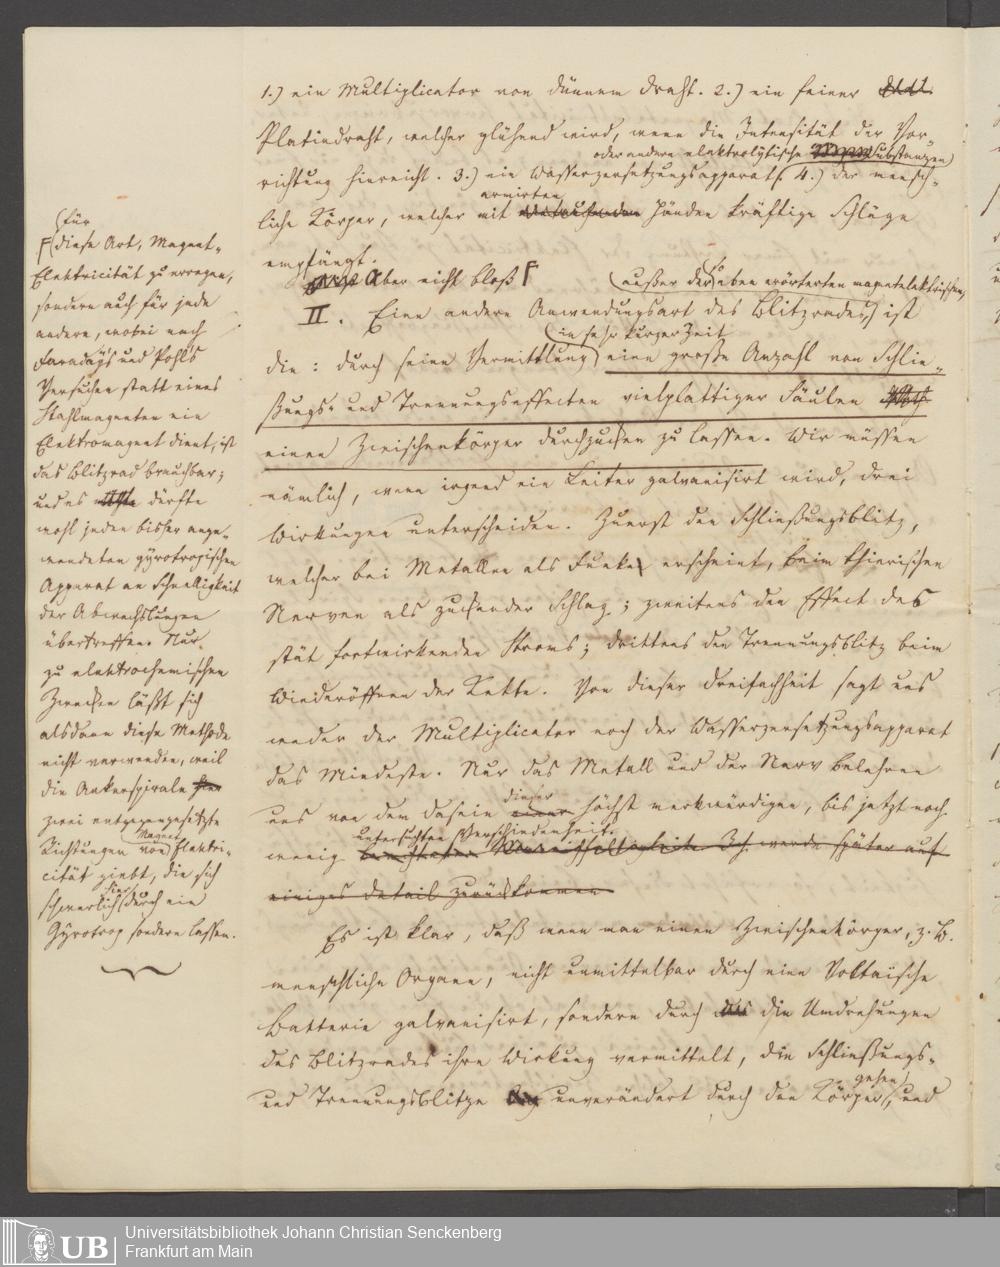 1.) ein Multiplicator von dünnem Draht. 2.) ein feiner
Platindraht, welcher glühend wird, wenn die Intensität der Vor-
oder andere elektrolytische Substanzen)
richtung hinreicht. 3.) ein Wasserzersetzungsapparat( 4.) der mensch-
armirten
liche Körper, welcher mit Händen kräftige Schläge
empfängt.
Aber nicht bloß F
(für
F(diese Art, Magnet-
Elektricität zu erregen,
sondern auch für jede
andere, wobei nach
Faraday's und Pohl's
Versuchen statt eines
Stahlmagneten ein
Elektromagnet dient, ist
das Blitzrad brauchbar;
und es dürfte
wohl jeden bisher ange-
wendeten gyrotropischen
Apparat an Schnelligkeit
der Abwechslungen
übertreffen. Nur
zu elektrochemischen
Zwecken läßt sich
alsdann diese Methode
nicht verwenden, weil
die Ankerspirale hier
zwei entgegengesetzte
Magnet
Richtungen von Elektri-
cität giebt, die sich
hier
schwerlich durch ein
Gyrotrop sondern lassen.
(außer der so eben erörterten magnetelektrischen,
II. Eine andere Anwendungsart des Blitzrades) ist
(in sehr kurzer Zeit
die: durch seine Vermittlung) eine große Anzahl von Schlie-
ßungs- und Trennungseffecten vielplattiger Säulen
einen Zwischenkörper durchzucken zu lassen. Wir müssen
nämlich, wenn irgend ein Leiter galvanisirt wird, drei
Wirkungen unterscheiden. Zuerst den Schließungsblitz,
welcher bei Metallen als Funke erscheint, beim thierischen
Nerven als zuckender Schlag; zweitens den Effect des
stät fortwirkenden Stroms; drittens den Trennungsblitz beim
Wiederöffnen der Kette. Von dieser Dreifachheit sagt uns
weder der Multiplicator noch der Wasserzersetzungsapparat
das Mindeste. Nur das Metall und der Nerv belehren
dieser
uns von dem Dasein einer höchst merkwürdigen, bis jetzt noch
untersuchten Verschiedenheit.
wenig Ich werde später auf
einiges Detail zurückkommen
Es ist klar, daß wenn man einen Zwischenkörper, z. B.
menschliche Organe, nicht unmittelbar durch eine Voltaische
Batterie galvanisirt, sondern durch die Umdrehungen
des Blitzrades ihre Wirkung vermittelt, die Schließungs-
gehen
und Trennungsblitze unverändert durch den Körper, und
Universitätsbibliothek Johann Christian Senckenberg
Frankfurt am Main
UB